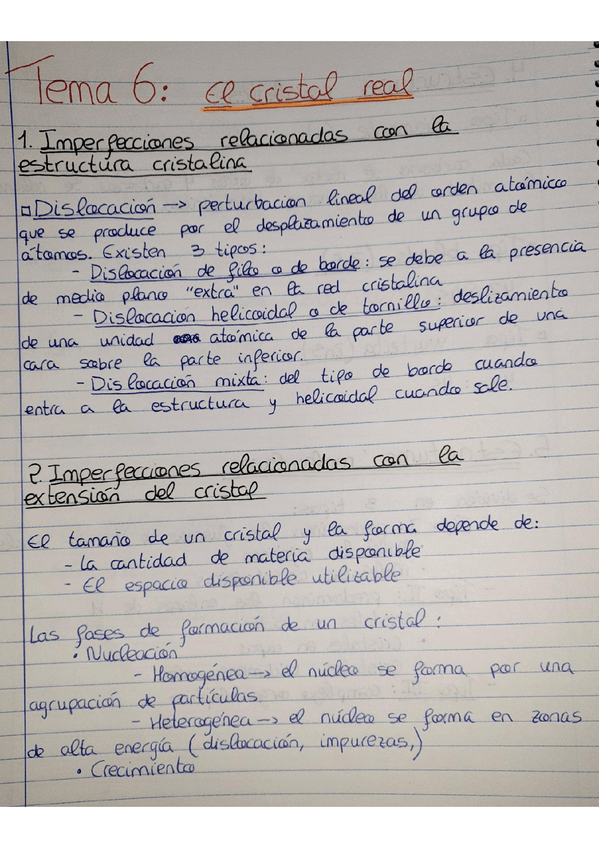 Tema 6: el cristal real
1. Imperfecciones relacionadas con la
estructura cristalina
Dislocación → perturbacion lineal del orden atómico
que se produce por el desplazamiento de un grupo de
átomos. Existen 3 tipos:
- Dislocación de filo o de borde: se debe a la presencia
de medio plano "extra" en la red cristalina
- Dislocacion helicoidal o de tornillo: deslizamiento
de una unidad atómica de la parte superior de una
cara sobre la parte inferior.
- Dislocación mixta: del tipo de bordo cuando
entra a la estructura y helicoidal cuando sale.
2. Imperfecciones relacionadas con la
extensión del cristal
El tamaño de un cristal y la forma depende de:
- La cantidad de materia disponible
- El espacio disponible utilizable
Las fases de formación de un cristal:
• Nucleación
- Homogénea → el núcleo se forma por una
agrupación de partículas
- Heterogénea → el núcleo se forma en zonas
de alta energía (dislocación, impurezas,)
• Crecimiento